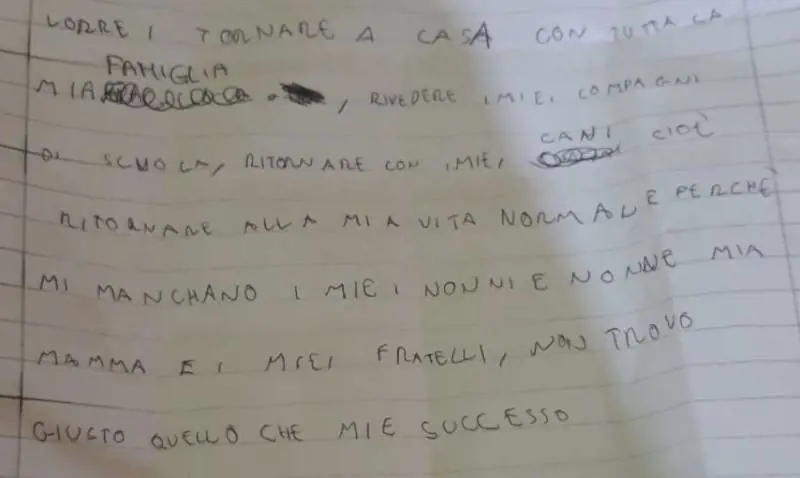 VORREI TORNARE A CASA CON TUTTA LA
FAMIGLIA
MIA , RIVEDERE I MIEI COMPAGNI
DI SCUOLA, RITORNARE CON I MIEI CANI CIOÈ
RITORNARE ALLA MIA VITA NORMALE PERCHÈ
MI MANCHANO I MIEI NONNI E NONNE MIA
MAMMA E I MIEI FRATELLI, NON TROVO
GIUSTO QUELLO CHE MIE SUCCESSO